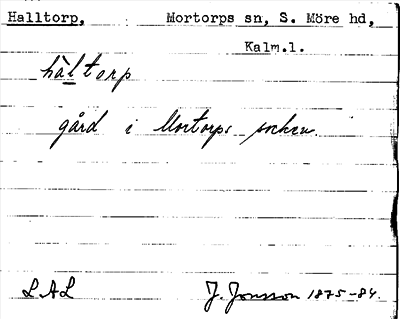 Halltorp, Mortorps sn, S. Möre hd,
Kalm.l.
hàltorp
gård i Mortorps socken.
LAL J. Jonsson 1875-84.